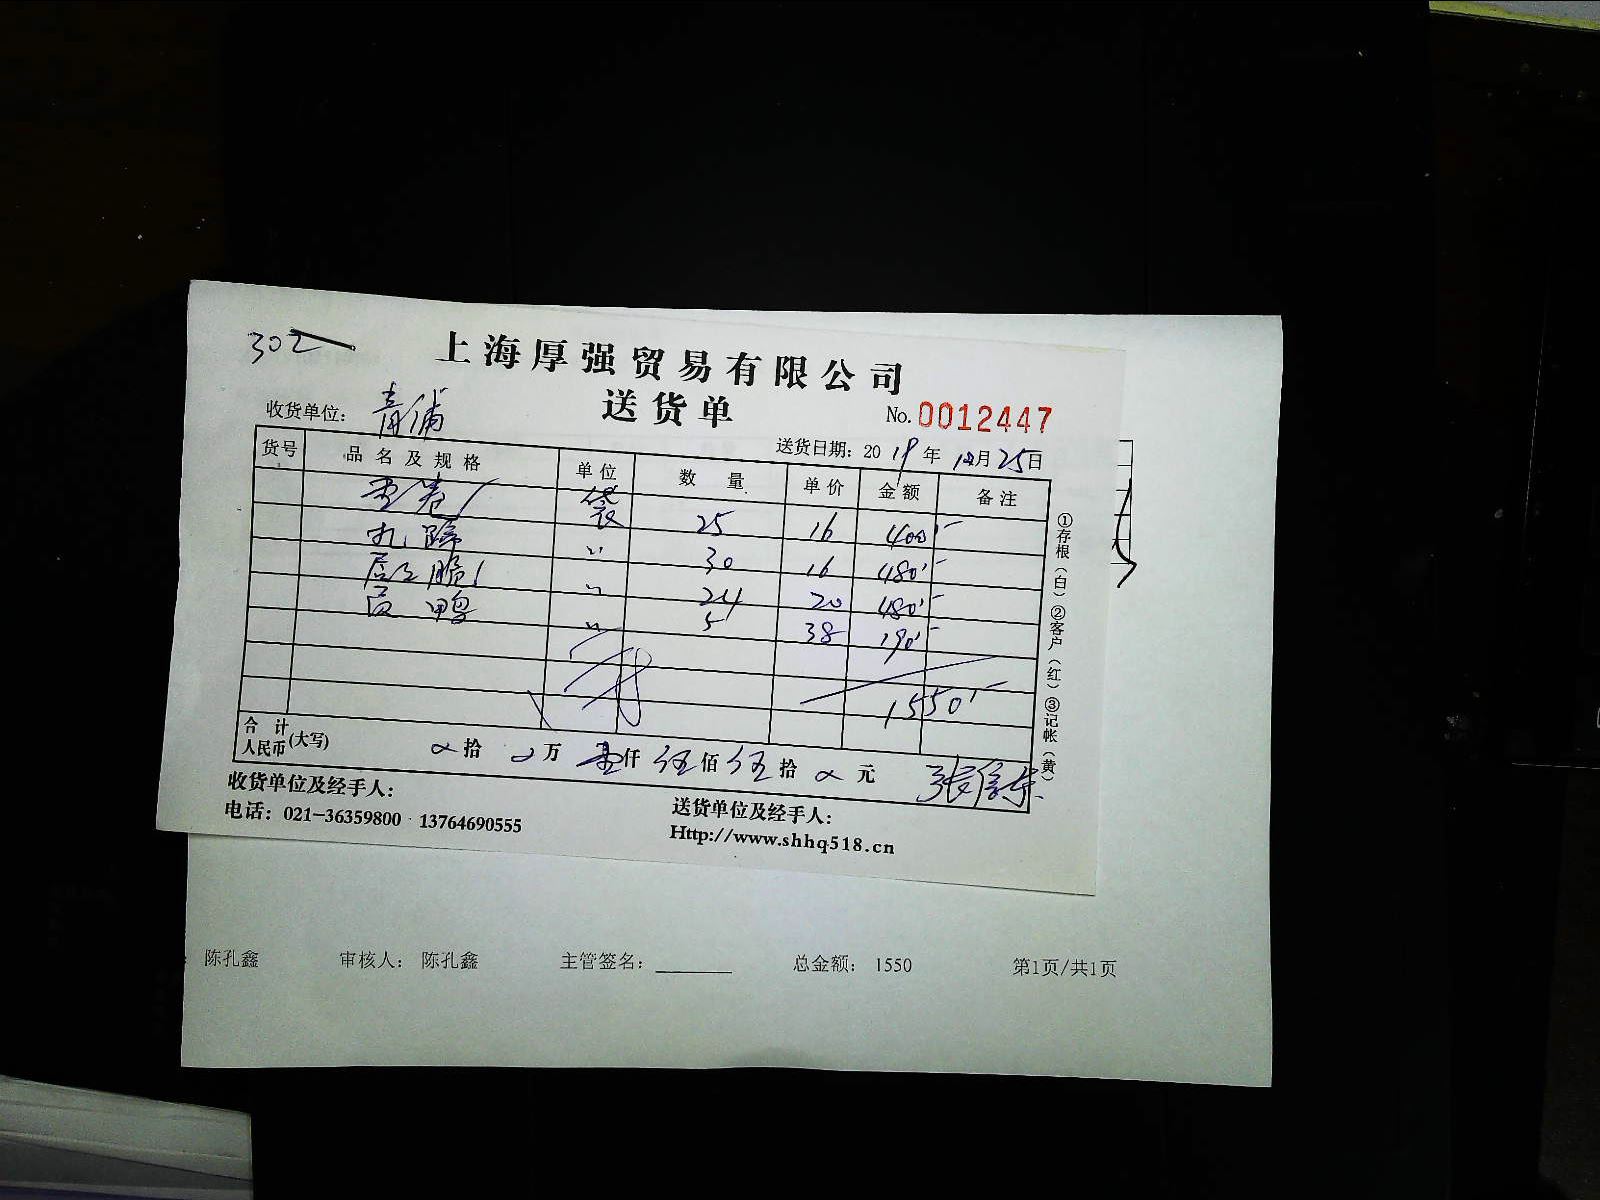 302
上海厚强贸易有限公司
送货单
No. 0012447
收货单位: 青浦
送货日期: 2019年12月25日
货号 品名及规格 单位 数量 单价 金额 备注
袋 25 16 400
扎蹄 〃 30 16 480
〃 24 20 480
鸭 〃 5 38 190
1550
合计人民币(大写) 拾 万 壹仟 伍佰 伍拾 元
①存根(白) ②客户(红) ③记帐(黄)
收货单位及经手人:
送货单位及经手人:
电话: 021-36359800 13764690555
Http://www.shhq518.cn
陈孔鑫 审核人: 陈孔鑫 主管签名: 总金额: 1550 第1页/共1页